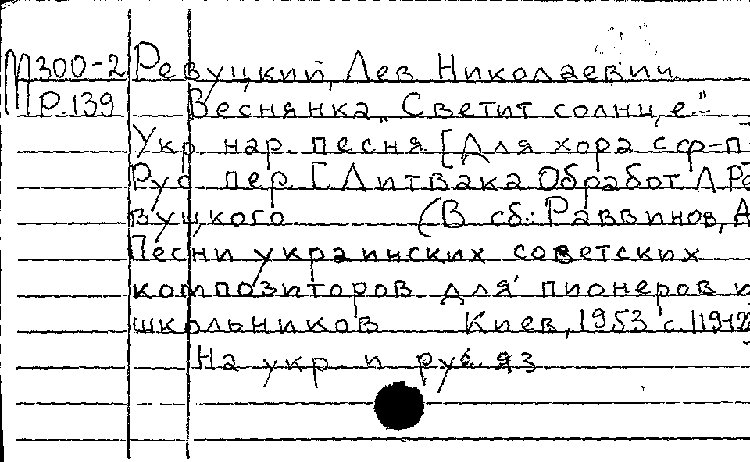 М300-2 Ревуцкий, Лев Николаевич
Р.139 Веснянка „Светит солнце"
Укр. нар. песня [Для хора с ф-п
Рус. пер. Г. Литвака Обработ Л Ре
вуцкого (В сб.: Раввинов, А
Песни украинских советских
композиторов для пионеров и
школьников Киев, 1953 с.
На укр и рус. яз